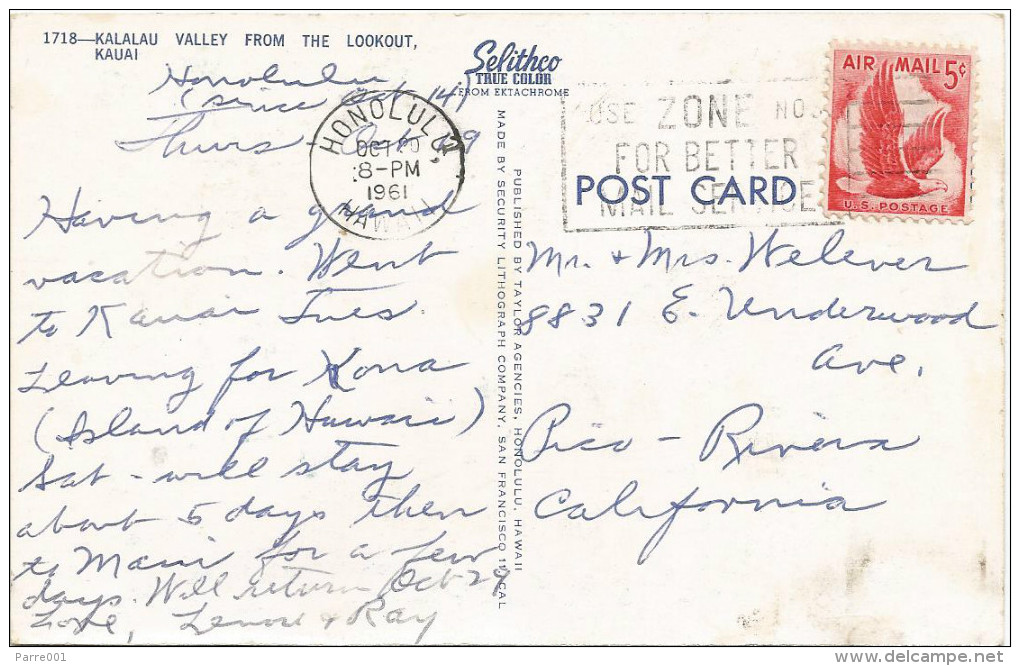 1718—KALALAU VALLEY FROM THE LOOKOUT,
KAUAI
Selithco
TRUE COLOR
FROM EKTACHROME
Honolulu
(since Oct 14)
Thurs - Oct 19
Having a grand
vacation. Went
to Kauai Tues.
Leaving for Kona
(Island of Hawaii)
Sat - will stay
about 5 days then
to Maui for a few
days. Will return Oct 29
Love, Lenore & Ray
HONOLULU,
OCT 20
8-PM
1961
HAWAII
MADE BY SECURITY LITHOGRAPH COMPANY, SAN FRANCISCO 11, CAL
PUBLISHED BY TAYLOR AGENCIES, HONOLULU, HAWAII
USE ZONE NO.
FOR BETTER
MAIL SERVICE
POST CARD
AIR MAIL 5¢
U.S. POSTAGE
Mr. & Mrs. Welever
8831 E. Underwood
Ave.
Pico - Rivera
California
Parre001